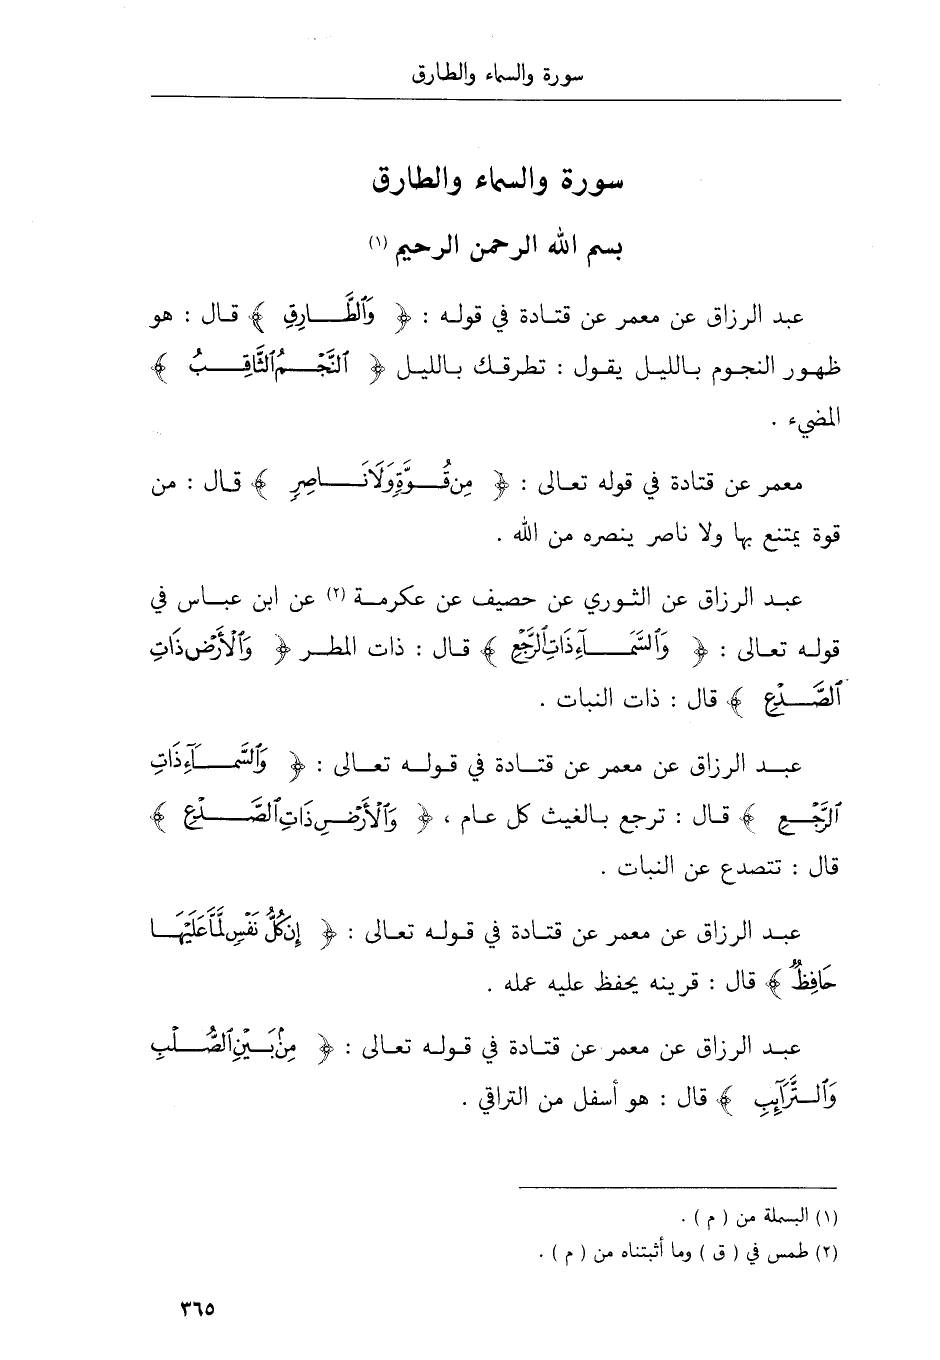 سورة والسماء والطارق
سورة والسماء والطارق
بسم الله الرحمن الرحيم (١)
عبد الرزاق عن معمر عن قتادة في قوله : ﴿ وَٱلطَّارِقِ ﴾ قال : هو
ظهور النجوم بالليل يقول : تطرقك بالليل ﴿ ٱلنَّجْمُ ٱلثَّاقِبُ ﴾
المضيء .
معمر عن قتادة في قوله تعالى : ﴿ مِن قُوَّةٍ وَلَا نَاصِرٍ ﴾ قال : من
قوة يمتنع بها ولا ناصر ينصره من الله .
عبد الرزاق عن الثوري عن حصيف عن عكرمة (٢) عن ابن عباس في
قوله تعالى : ﴿ وَٱلسَّمَآءِ ذَاتِ ٱلرَّجْعِ ﴾ قال : ذات المطر ﴿ وَٱلْأَرْضِ ذَاتِ
ٱلصَّدْعِ ﴾ قال : ذات النبات .
عبد الرزاق عن معمر عن قتادة في قوله تعالى : ﴿ وَٱلسَّمَآءِ ذَاتِ
ٱلرَّجْعِ ﴾ قال : ترجع بالغيث كل عام ، ﴿ وَٱلْأَرْضِ ذَاتِ ٱلصَّدْعِ ﴾
قال : تتصدع عن النبات .
عبد الرزاق عن معمر عن قتادة في قوله تعالى : ﴿ إِن كُلُّ نَفْسٍ لَّمَّا عَلَيْهَا
حَافِظٌ ﴾ قال : قرينه يحفظ عليه عمله .
عبد الرزاق عن معمر عن قتادة في قوله تعالى : ﴿ مِنۢ بَيْنِ ٱلصُّلْبِ
وَٱلتَّرَآئِبِ ﴾ قال : هو أسفل من التراقي .
(١) البسملة من ( م ) .
(٢) طمس في ( ق ) وما أثبتناه من ( م ) .
٣٦٥